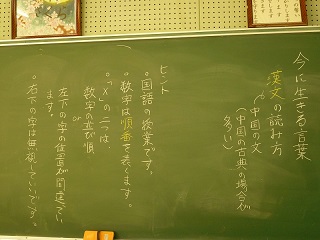 今に生きる言葉
漢文の読み方
中国の文
(中国の古典の場合が
多い)
ヒント
。国語の授業です。
。数字は順番を表します。
。「X」の二つは
数字の並び順
or
左下の字の位置が間違ってい
ます。
。右下の字は無視していいです。